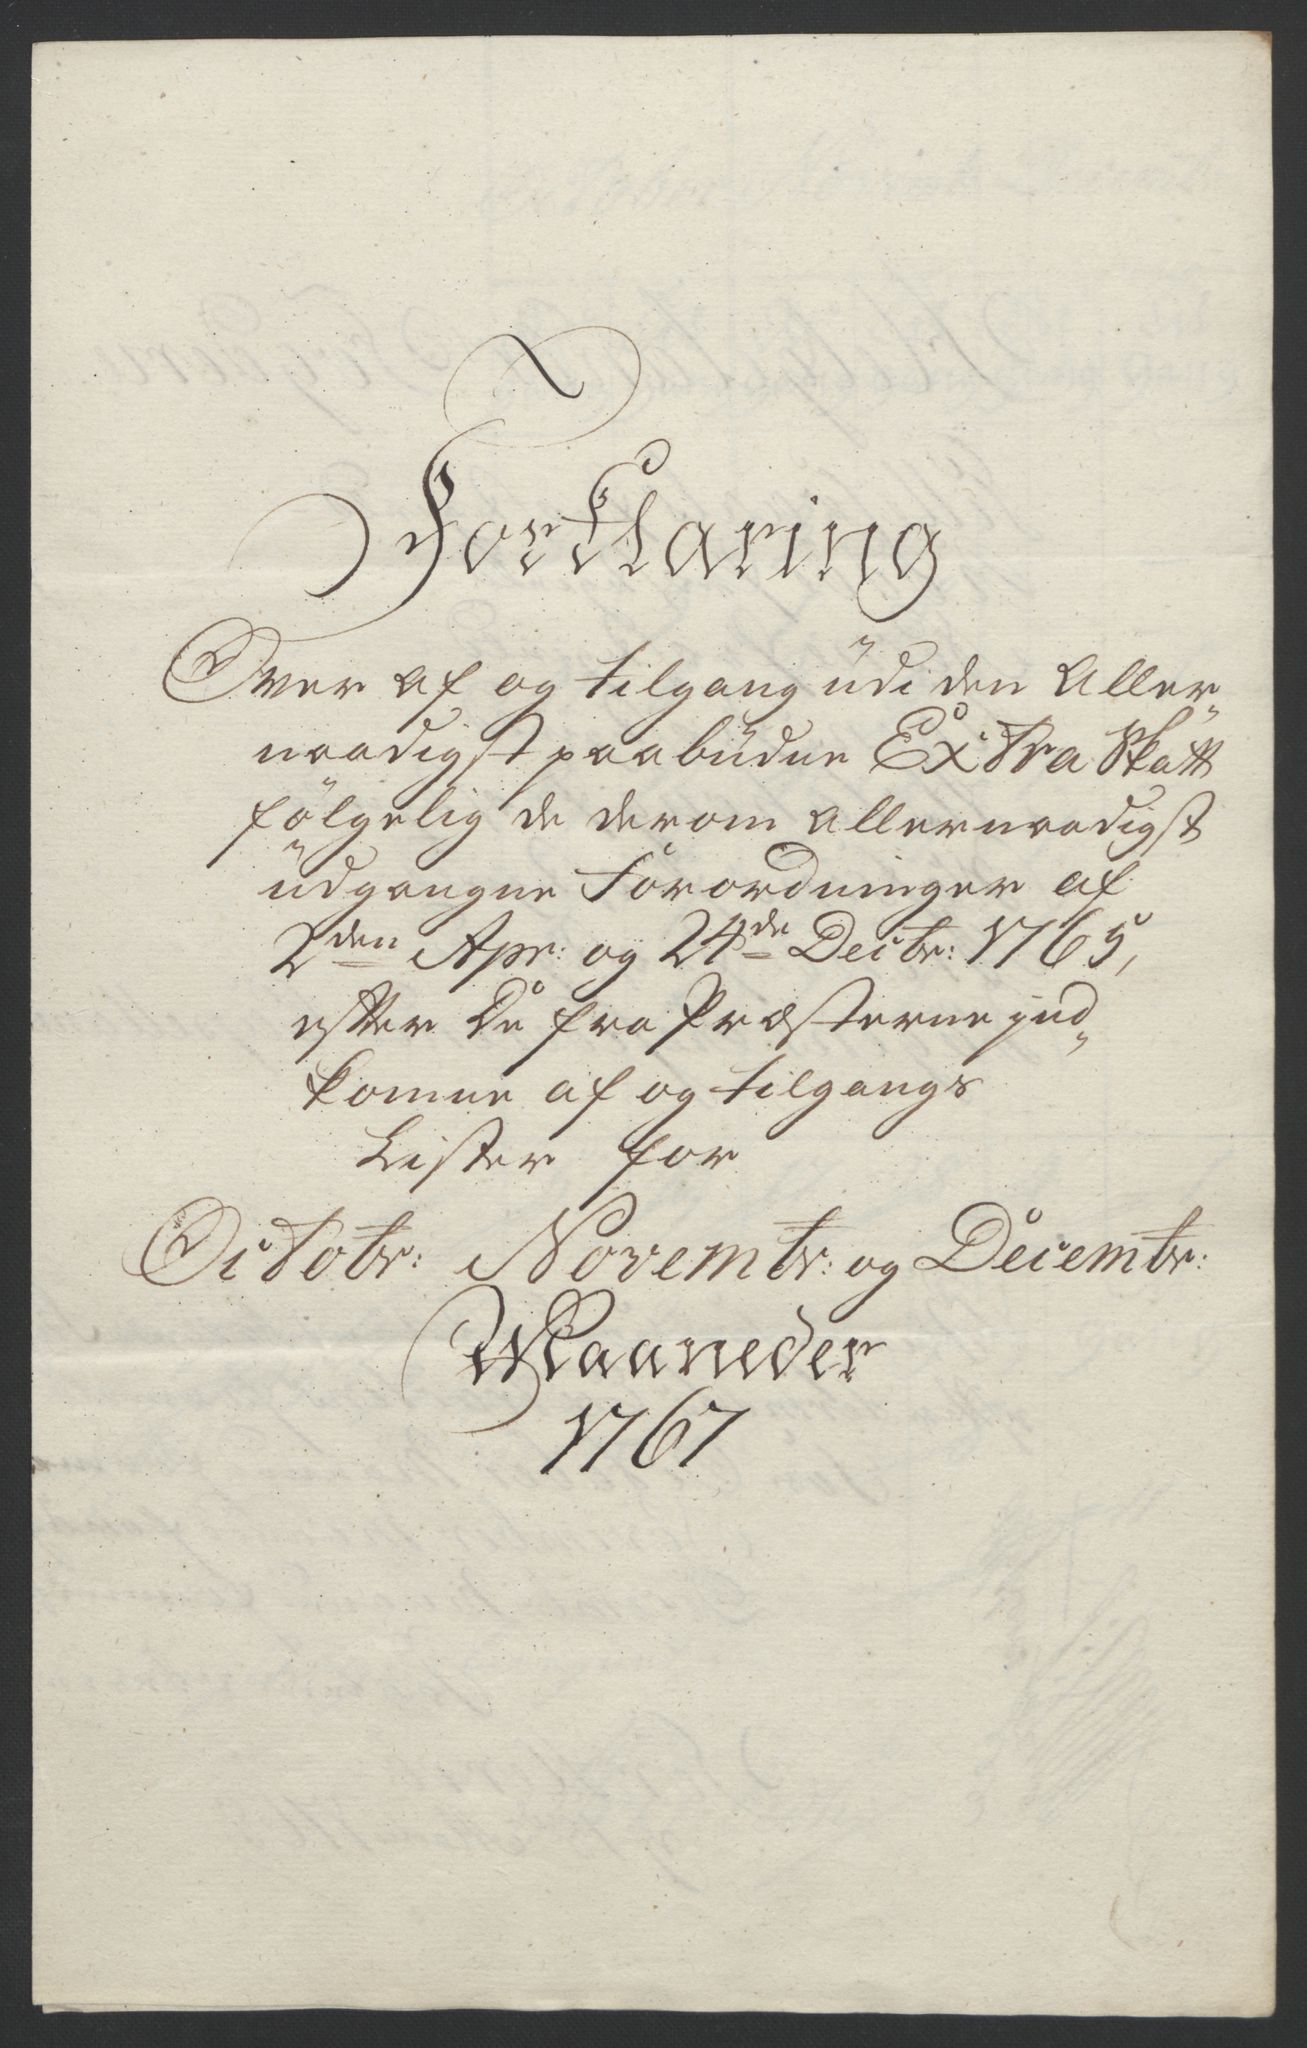 Forklaring
Over af og tilgang udi den Aller-
naadigst paabudne Extra Skatt
følgelig de derom Allernaadigst
udgangne Forordninger af
2den Apr: og 24de Decbr: 1765,
efter De fra Præsterne ind-
komne af og tilgangs
Lister for
Octobr: Novembr: og Decembr:
Maaneder
1767